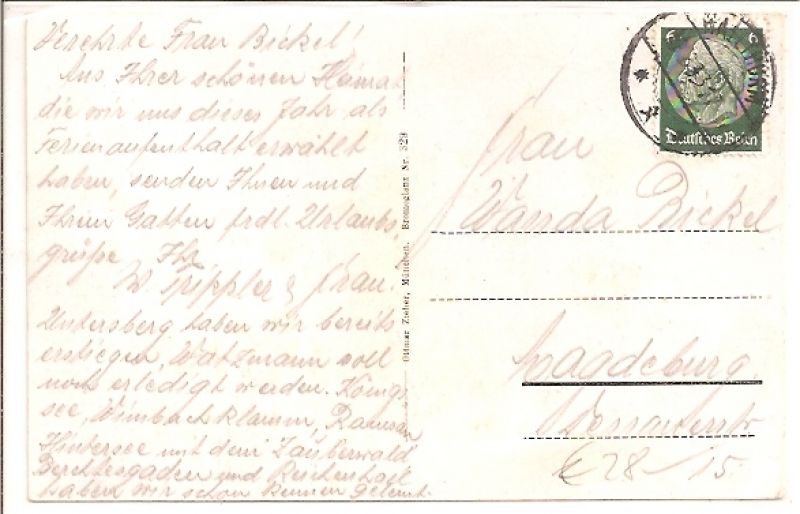 Verehrte Frau Bickel!
Aus Ihrer schönen Heimat
die wir uns dieses Jahr als
Ferienaufenthalt erwählt
haben, senden Ihnen und
Ihrem Gatten frdl. Urlaubs,
grüße Ihr
W. Trippler & Frau.
Untersberg haben wir bereits
erstiegen, Watzmann soll
noch erledigt werden. Königs
see, Wimbachklamm, Ramsau
Hintersee mit dem Zauberwald
Berchtesgaden und Reichenhall
haben wir schon kennen gelernt.
Ottmar Zieher, München. Bromoglanz Nr. 329
6 6
Deutsches Reich
Frau
Wanda Bickel
Magdeburg.
€ 28 15